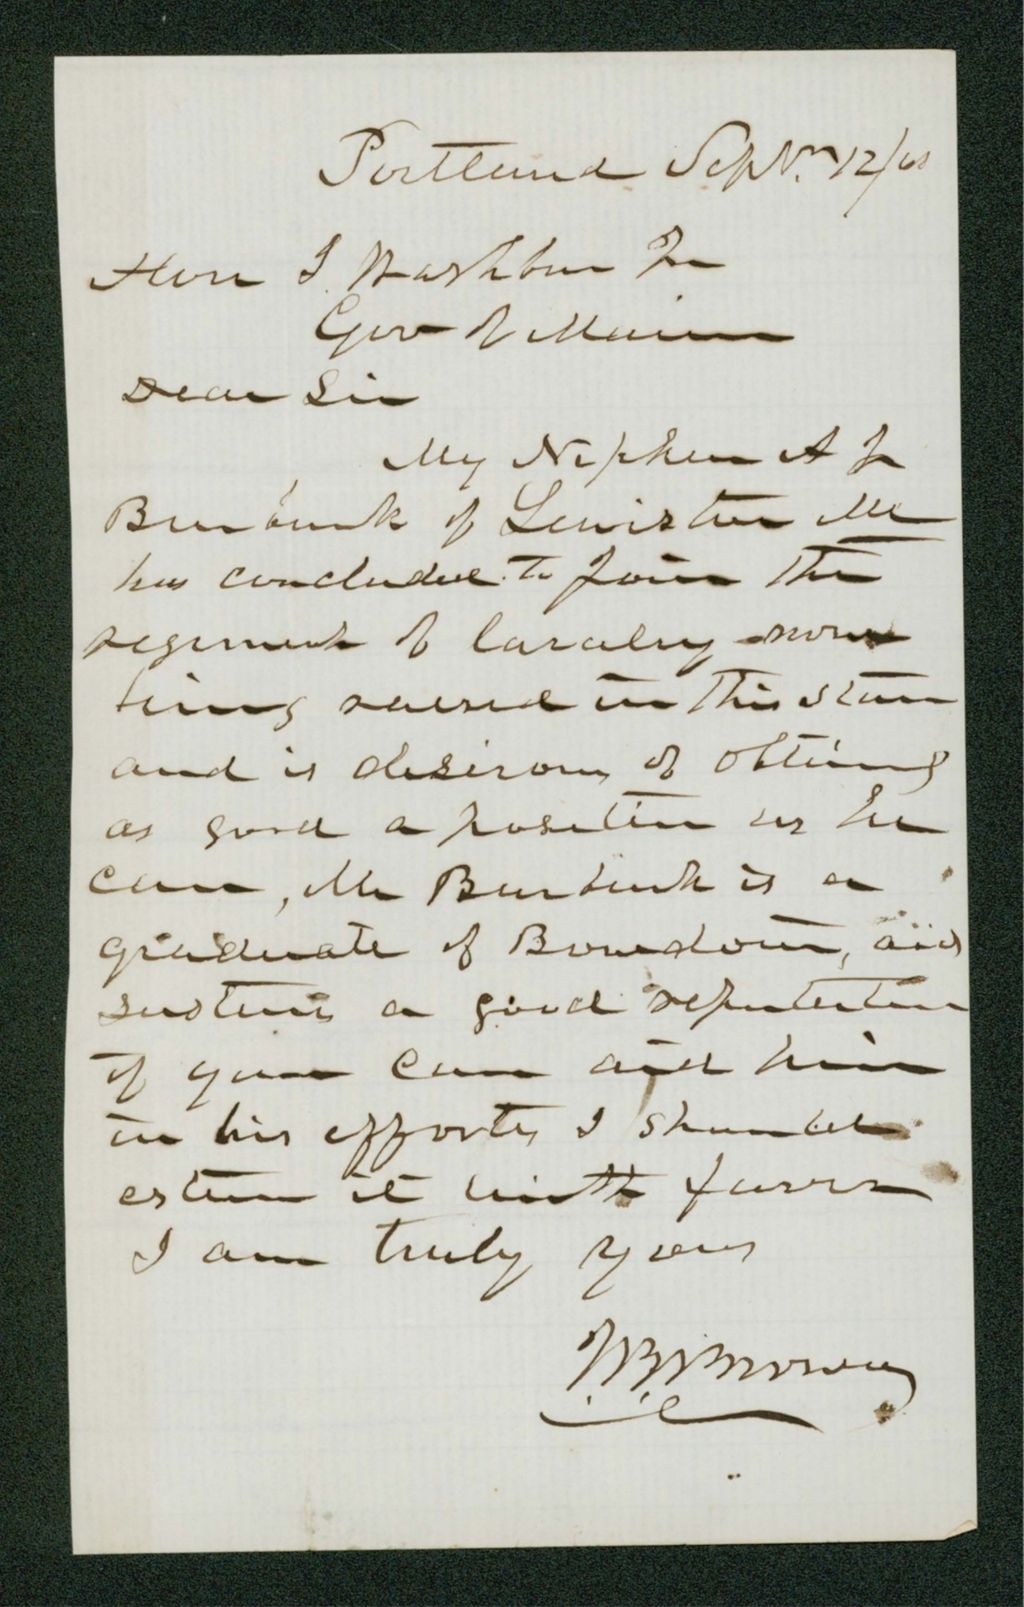 Portland Sept. 12/61
Hon I Washburn Jr
Gov of Maine
Dear Sir
My Nephew A J
Burbank of Lewiston Me
has concluded to join the
regiment of Cavalry now
being raised in this State
and is desirous of obtaing
as good a position as he
can, Mr Burbank is a
graduate of Bowdoin, and
sustains a good reputation
if you can aid him
in his efforts I should
esteem it with favor
I am truly yours
J B Brown